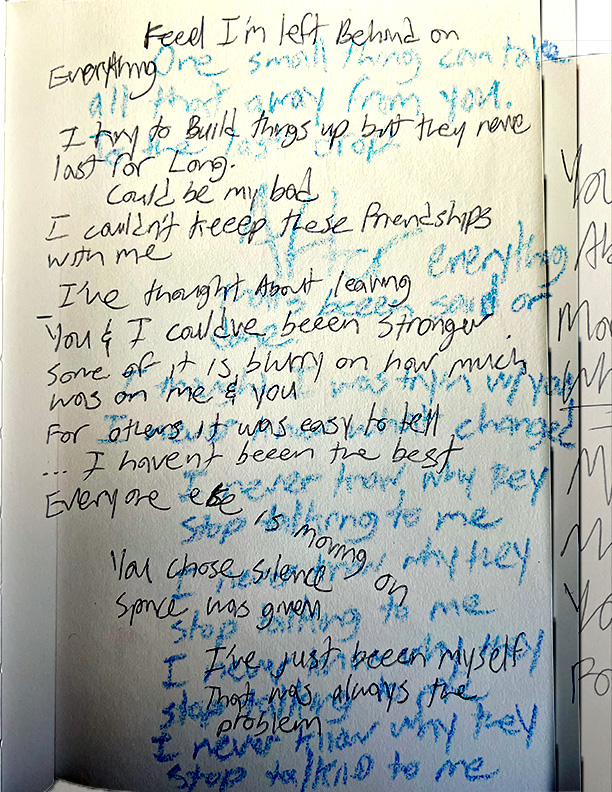 Feel I'm left Behind on
Everything
I try to Build things up but they never
last for Long.
Could be my bad
I couldn't keeep these Friendships
with me
I've thought About leaving
You & I could've beeen stronger.
some of it is blurry on how much
was on me & you
For others it was easy to tell
... I haven't beeen the best
Everyone else
is moving on
You chose silence
space was given
I've just beeen myself
That was always the
problem
One small thing can take
all that away from you.
last drop
After everything
beeen said or
was tryin w/ you
changed
I never know why they
stop talking to me
I never know why they
stop talking to me
I never know why they
stop talking
I never know why they
stop talking to me